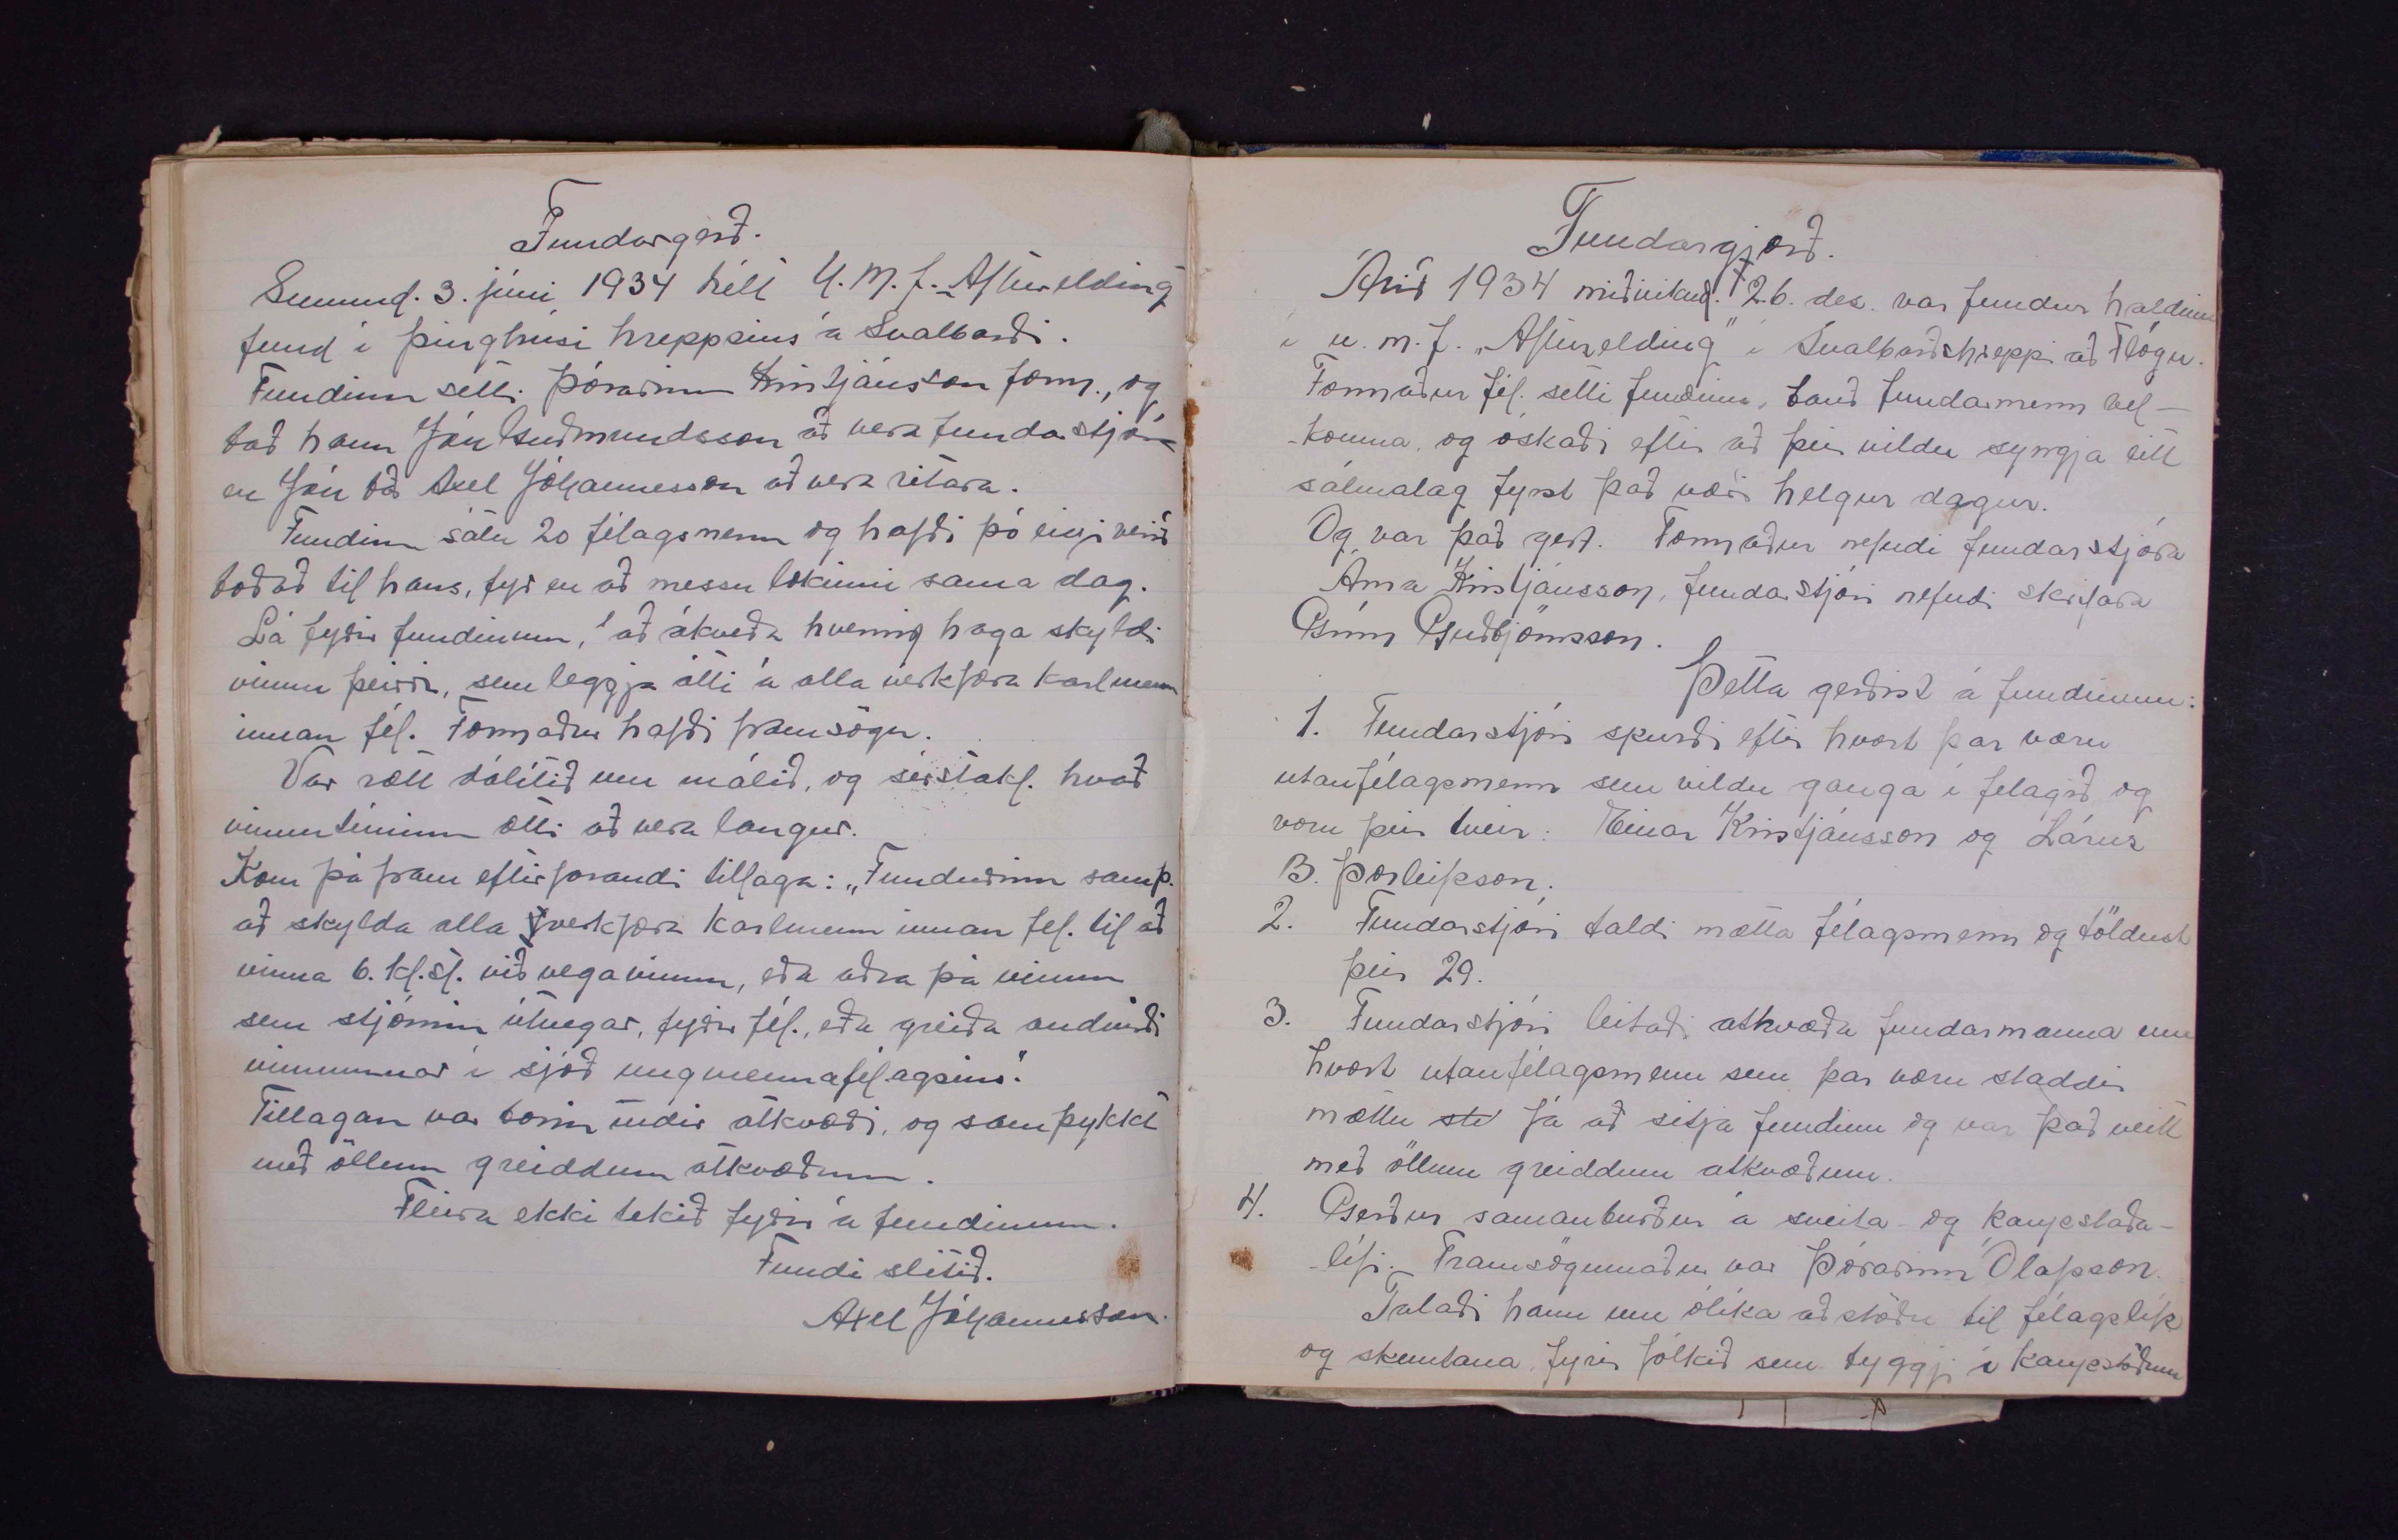 Fundargerð.
Sunnud. 3. júní 1934 hélt U.M.f. Afturelding
fund í þinghúsi hreppsins á Svalbarði.
Fundinn setti Þórarinn Kristjánsson form., og
bað hann Jón Guðmundsson að vera fundarstjóra
en Jón bað Axel Jóhannesson að vera ritara.
Fundinn sátu 20 félagsmenn og hafði þó eigi verið
boðað til hans, fyr en að messu lokinni sama dag.
Lá fyrir fundinum, að ákveða hvernig haga skyldi
vinnu þeirri, sem leggja átti á alla verkfæra karlmenn
innan fél. Formaður hafði framsögu.
Var rætt dálítið um málið, og sérstakl. hvað
vinnutíminn ætti að vera langur.
Kom þá fram eftirfarandi tillaga: „Fundurinn samþ.
að skylda alla verkfæra karlmenn innan fél. til að
vinna 6. kl.st. við vegavinnu, eða aðra þá vinnu
sem stjórnin útvegar, fyrir fél., eða greiða andvirði
vinnunnar í sjóð ungmennafélagsins“.
Tillagan var borin undir atkvæði, og samþykkt
með öllum greiddum atkvæðum.
Fleira ekki tekið fyrir á fundinum.
Fundi slitið.
Axel Jóhannesson.
Fundargjörð.
Árið 1934 miðvikud. 26. des. var fundur haldinn
í u.m.f. „Afturelding“ í Svalbarðshreppi að Flögu.
Formaður fél. setti fundinn, bauð fundarmenn vel-
-komna, og óskaði eftir að þeir vildu syngja eitt
sálmalag fyrst það væri helgur dagur.
Og var það gert. Formaður nefndi fundarstjóra
Arna Kristjánsson, fundarstjóri nefndi skrifara
Grím Guðbjörnsson.
Þetta gerðist á fundinum:
1. Fundarstjóri spurði eftir hvort þar væru
utanfélagsmenn sem vildu ganga í felagið og
voru þeir tveir: Einar Kristjánsson og Lárus
B. Þorleifsson.
2. Fundarstjóri taldi mætta félagsmenn og töldust
þeir 29.
3. Fundarstjóri leitaði atkvæða fundarmanna um
hvort utanfélagsmenn sem þar væru staddir
mættu ste fá að sitja fundinn og var það veitt
með öllum greiddum atkvæðum.
4. Gerður samanburður á sveita- og kaupstaða-
-lífi. Framsögumaður var Þórarinn Ólafsson.
Talaði hann um ólíka aðstöðu til félagslífs
og skemtana fyrir fólkið sem byggji í kaupstöðum